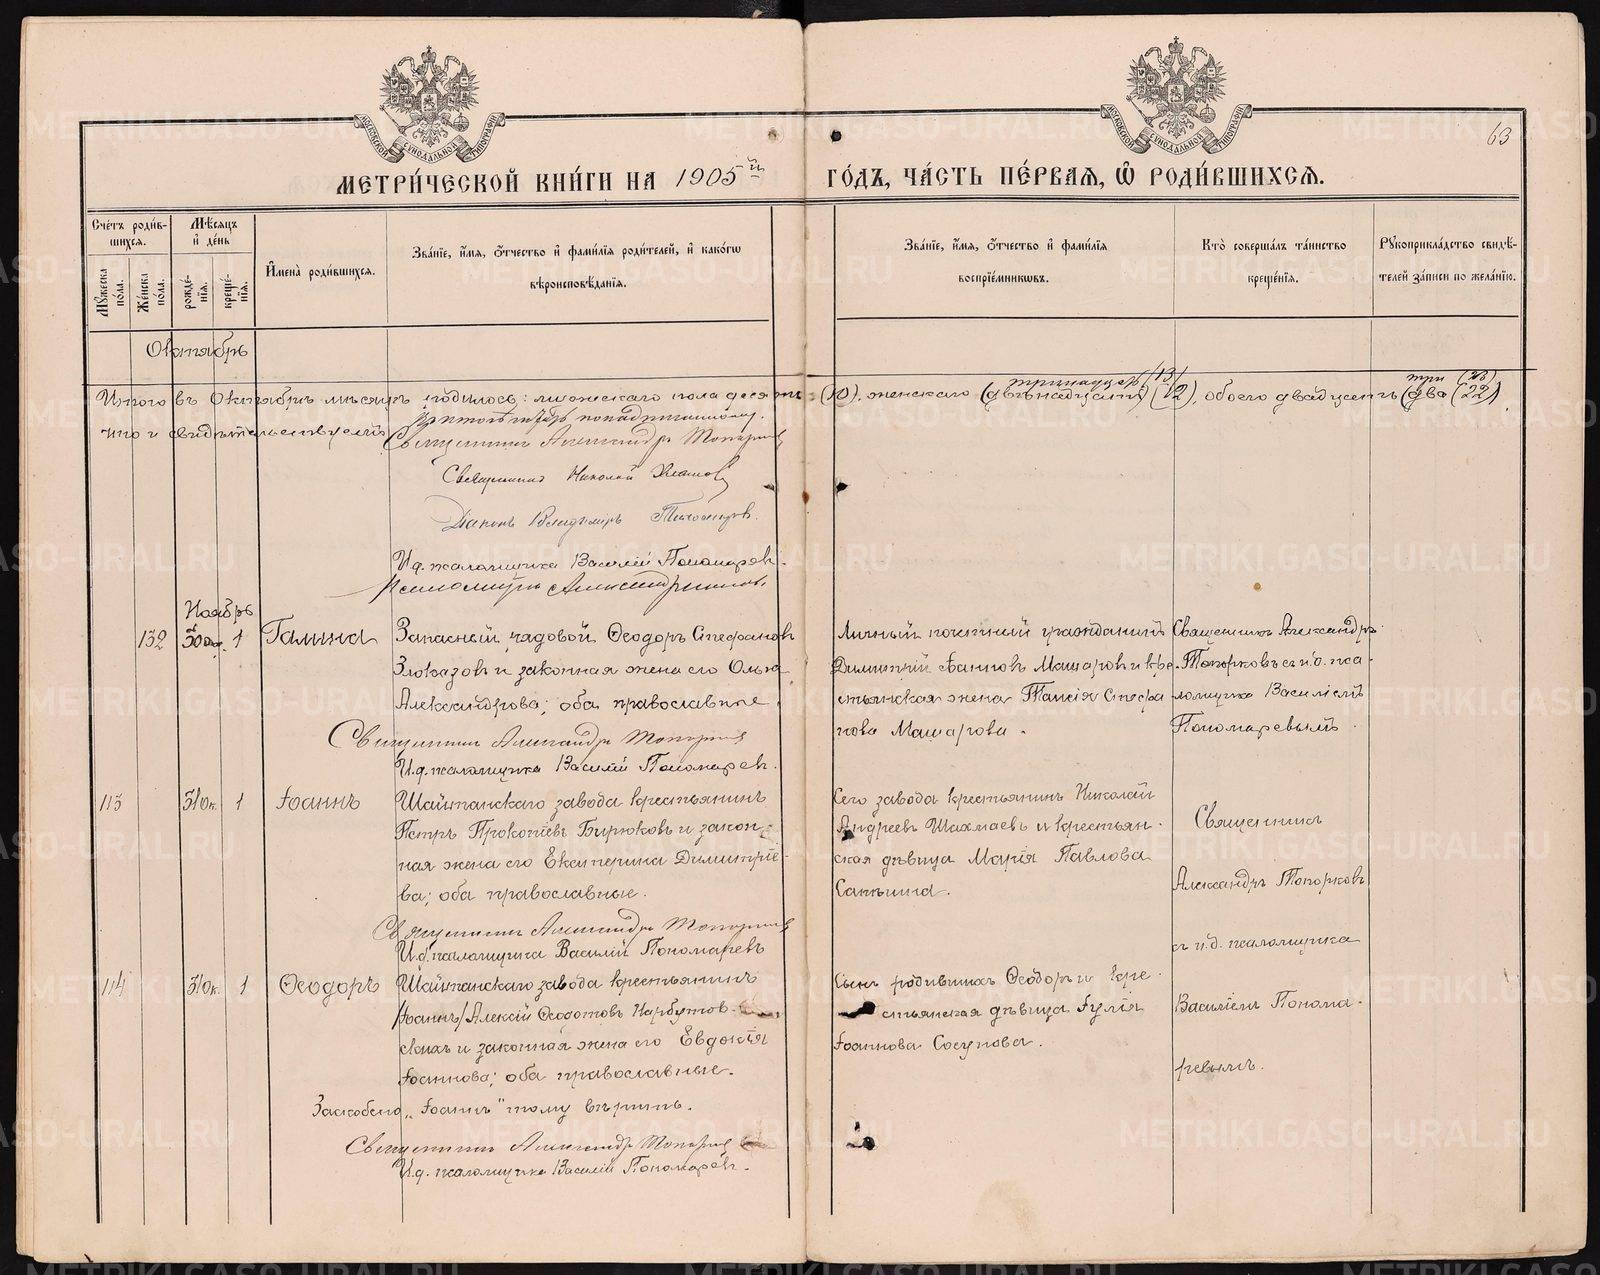 МЕТРИ́ЧЕСКОЙ КНИ́ГИ НА 1905й ГО́ДЪ, ЧА́СТЬ ПЕ́РВАѦ, Ѽ РОДИ́ВШИХСѦ.
63
МОСКОВСКОЙ СѴНОДАЛЬНОЙ ТИПОГРАФІИ
МОСКОВСКОЙ СѴНОДАЛЬНОЙ ТИПОГРАФІИ
Сче́тъ роди́в-
шихсѧ.
Мѣ́сяцъ
и҆ де́нь
Мꙋ́жеска по́ла.
Же́нска по́ла.
рожде́-нїѧ.
креще́-нїѧ.
И҆мена̀ роди́вшихсѧ.
Зва́нїе, и҆́мѧ, ѻ҆́тчество и҆ фами́лїѧ роди́телей, и҆ како́гѡ
вѣроисповѣ́данїѧ.
Зва́нїе, и҆́мѧ, ѻ҆́тчество и҆ фами́лїѧ
воспрїе́мникѡвъ.
Кто̀ соверша́лъ та́инство
креще́нїѧ.
Рꙋкоприкла́дство свидѣ́-
телей за́писи по жела́нїю.
Октябрь
тринадцать (13) три (23)
Итого въ Октябрѣ мѣсяцѣ родилось: мужескаго пола десять (10), женскаго (двѣнадцать) (12), обоего двадцать (два (22)
что и свидѣтельствуемъ
Священникъ Александръ Топорковъ
Священникъ Николай
Діаконъ Владиміръ
И.д. псаломщика Василій Пономаревъ.
Псаломщикъ
Ноябрь
132 30 Окт. 1 Галина
Запасный рядовой Ѳеодоръ Стефановъ
Злоказовъ и законная жена его Ольга
Александрова; оба православные.
Священникъ Александръ Топорковъ
И.д. псаломщика Василій Пономаревъ.
Личный почетный гражданинъ
Димитрій Машаровъ и кре-
стьянская жена Таисія Стефа
нова Машарова.
Священникъ Александръ
Топорковъ съ и.д. пса-
ломщика Василіемъ
Пономаревымъ.
113 31 Ок. 1 Іоаннъ
Шайтанскаго завода крестьянинъ
Петръ Прокопіевъ Бирюковъ и закон-
ная жена его Екатерина Димитріе-
ва; оба православные.
Священникъ Александръ Топорковъ
И.д. псаломщика Василій Пономаревъ
Сего завода крестьянинъ Николай
Андреевъ Шахмаевъ и крестьян-
ская дѣвица Марія Павлова
Санкина.
Священникъ
Александръ Топорковъ
съ и.д. псаломщика
Василіемъ Понома-
ревымъ.
114 31 Ок. 1 Ѳеодоръ
Шайтанскаго завода крестьянинъ
/Іоаннъ/ Алексій Ѳеодотовъ Нарбутов-
скихъ и законная жена его Евдокія
Іоаннова; оба православные.
Заскобено „Іоаннъ" тому вѣрить.
Священникъ Александръ Топорковъ
И.д. псаломщика Василій Пономаревъ.
Сынъ родившихъ Ѳеодоръ и кре-
стьянская дѣвица Іулія
Іоаннова Сосунова.
METRIKI.GASO-URAL.RU